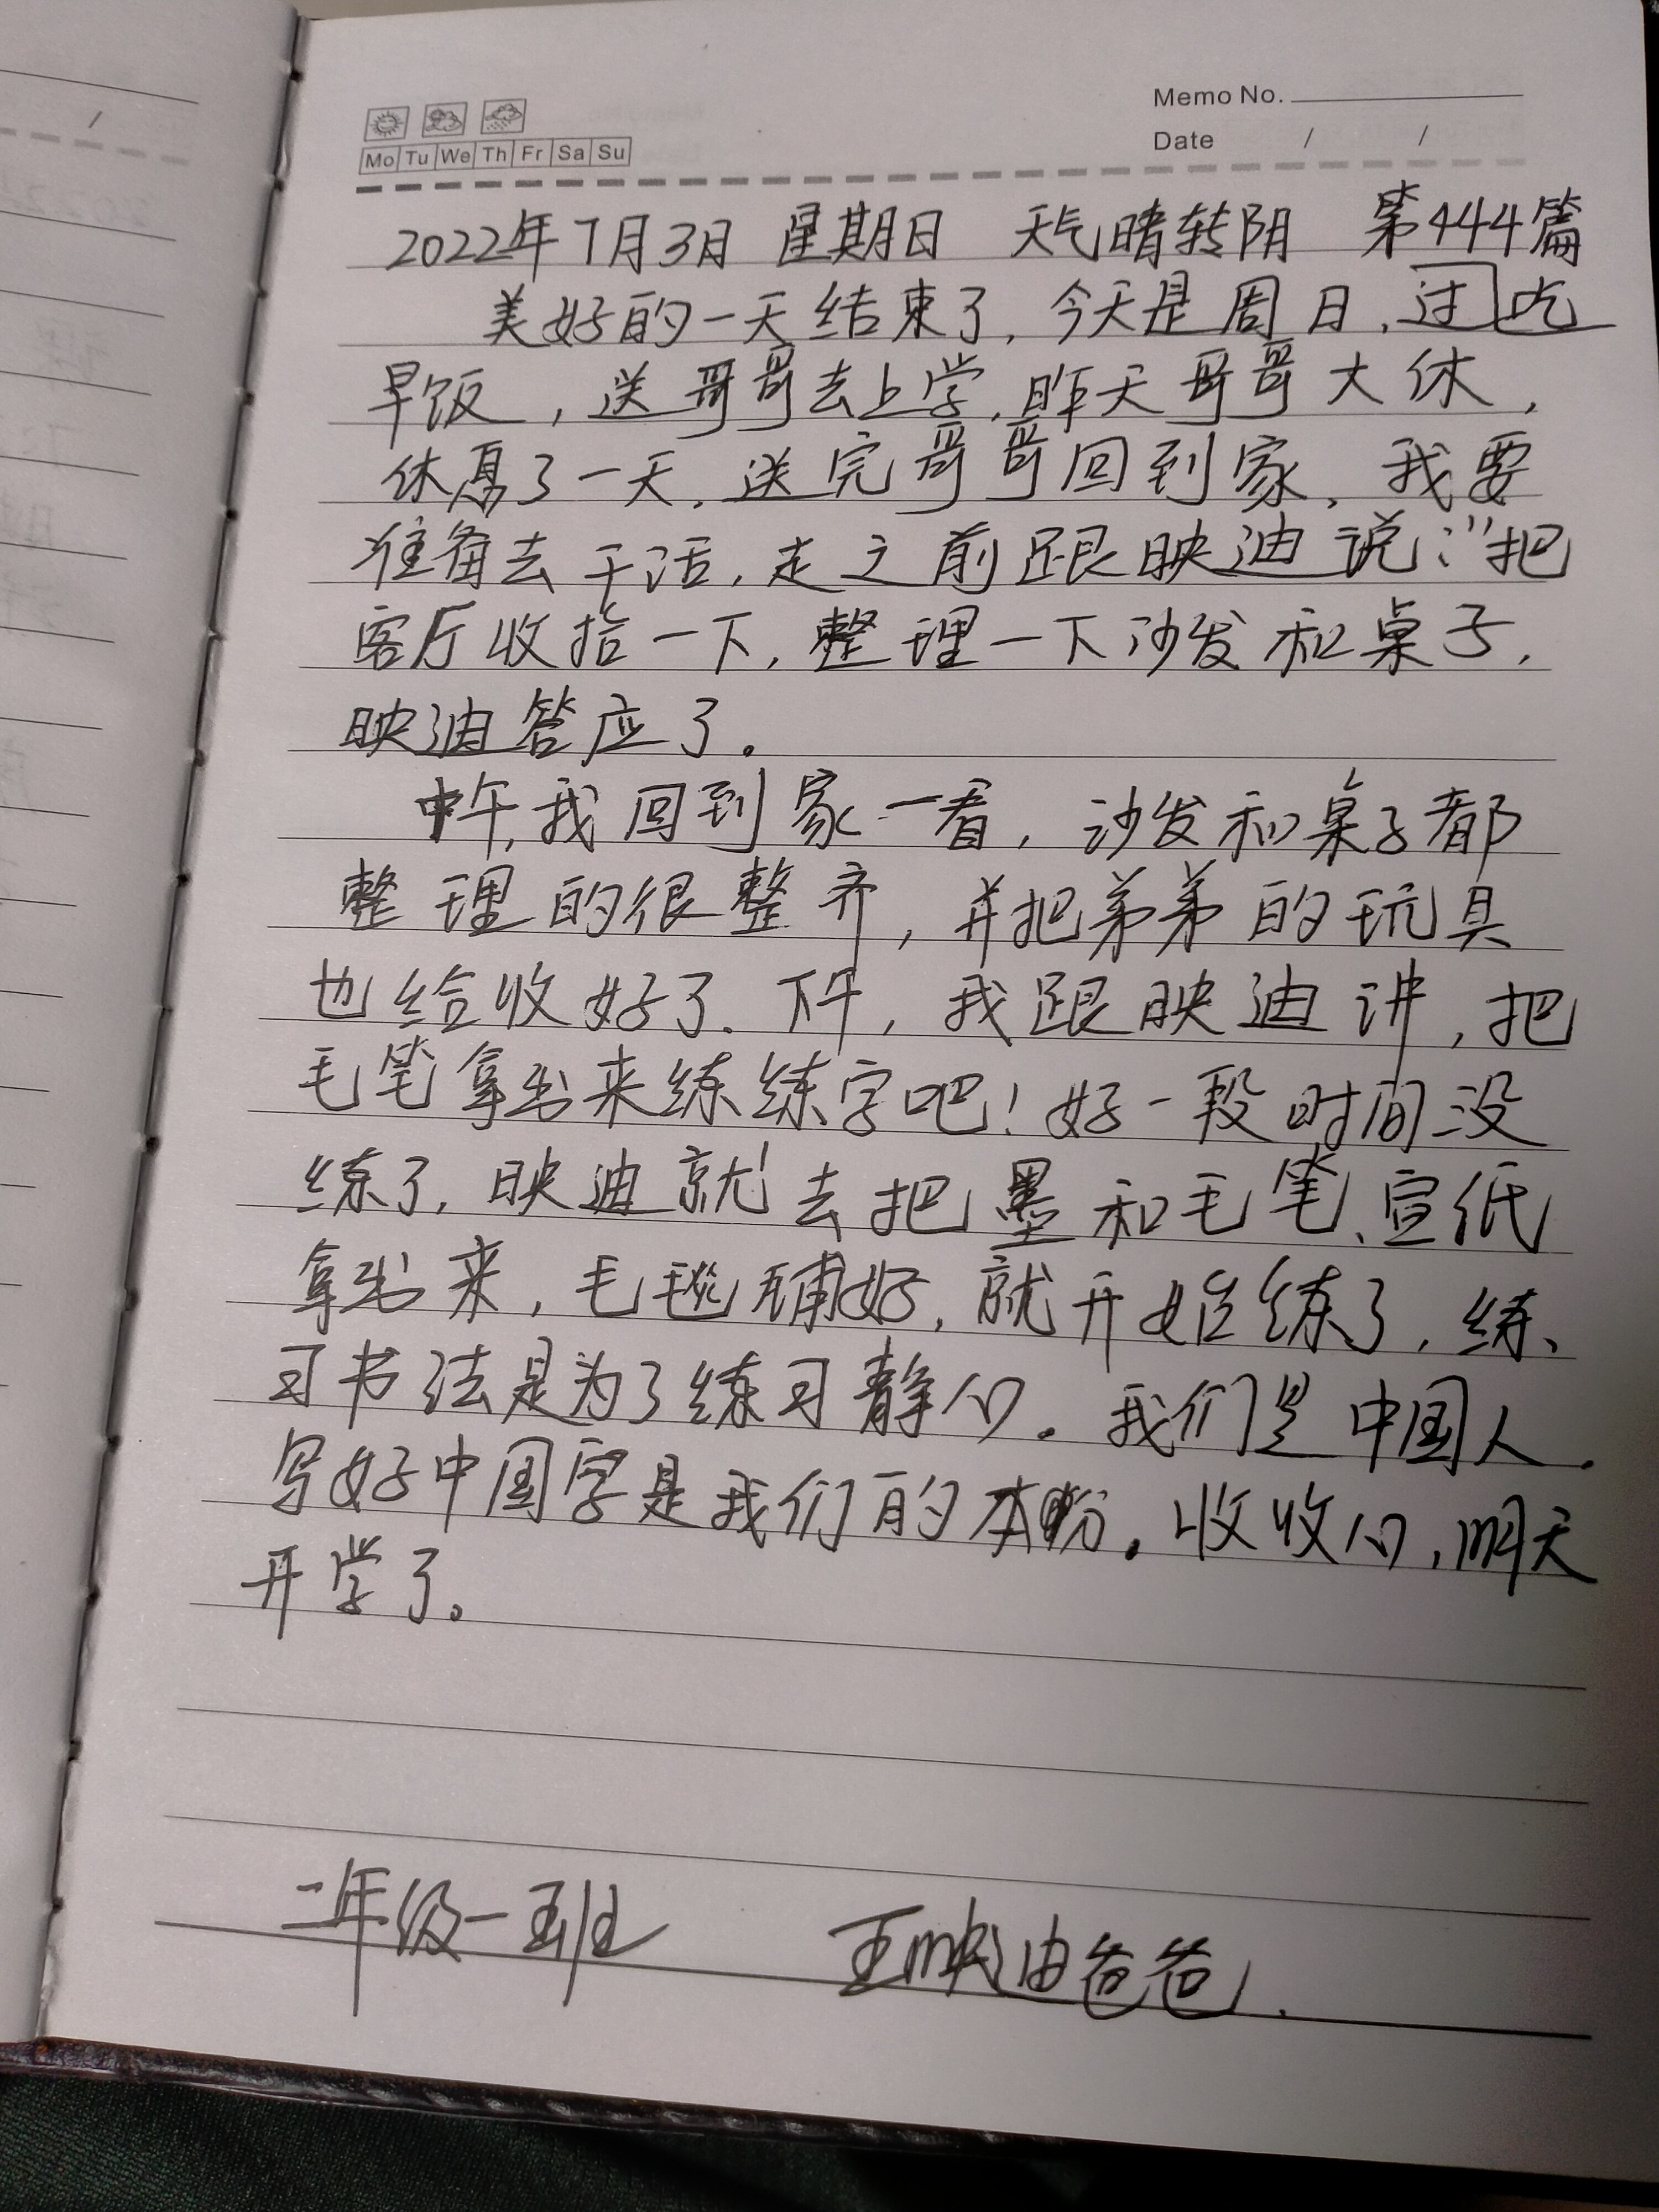 Memo No.
Mo Tu We Th Fr Sa Su
Date / /
2022年7月3日 星期日 天气晴转阴 第444篇
美好的一天结束了，今天是周日，过吃
早饭，送哥哥去上学，昨天哥哥大休，
休息了一天，送完哥哥回到家，我要
准备去干活，走之前跟映迪说：“把
客厅收拾一下，整理一下沙发和桌子，
映迪答应了。
中午，我回到家一看，沙发和桌子都
整理的很整齐，并把弟弟的玩具
也给收好了．下午，我跟映迪讲，把
毛笔拿出来练练字吧！好一段时间没
练了，映迪就去把墨和毛笔、宣纸
拿出来，毛毯铺好，就开始练了，练、
习书法是为了练习静心。我们是中国人．
写好中国字是我们的本份。收收心，明天
开学了。
二年级一班 王映迪爸爸．